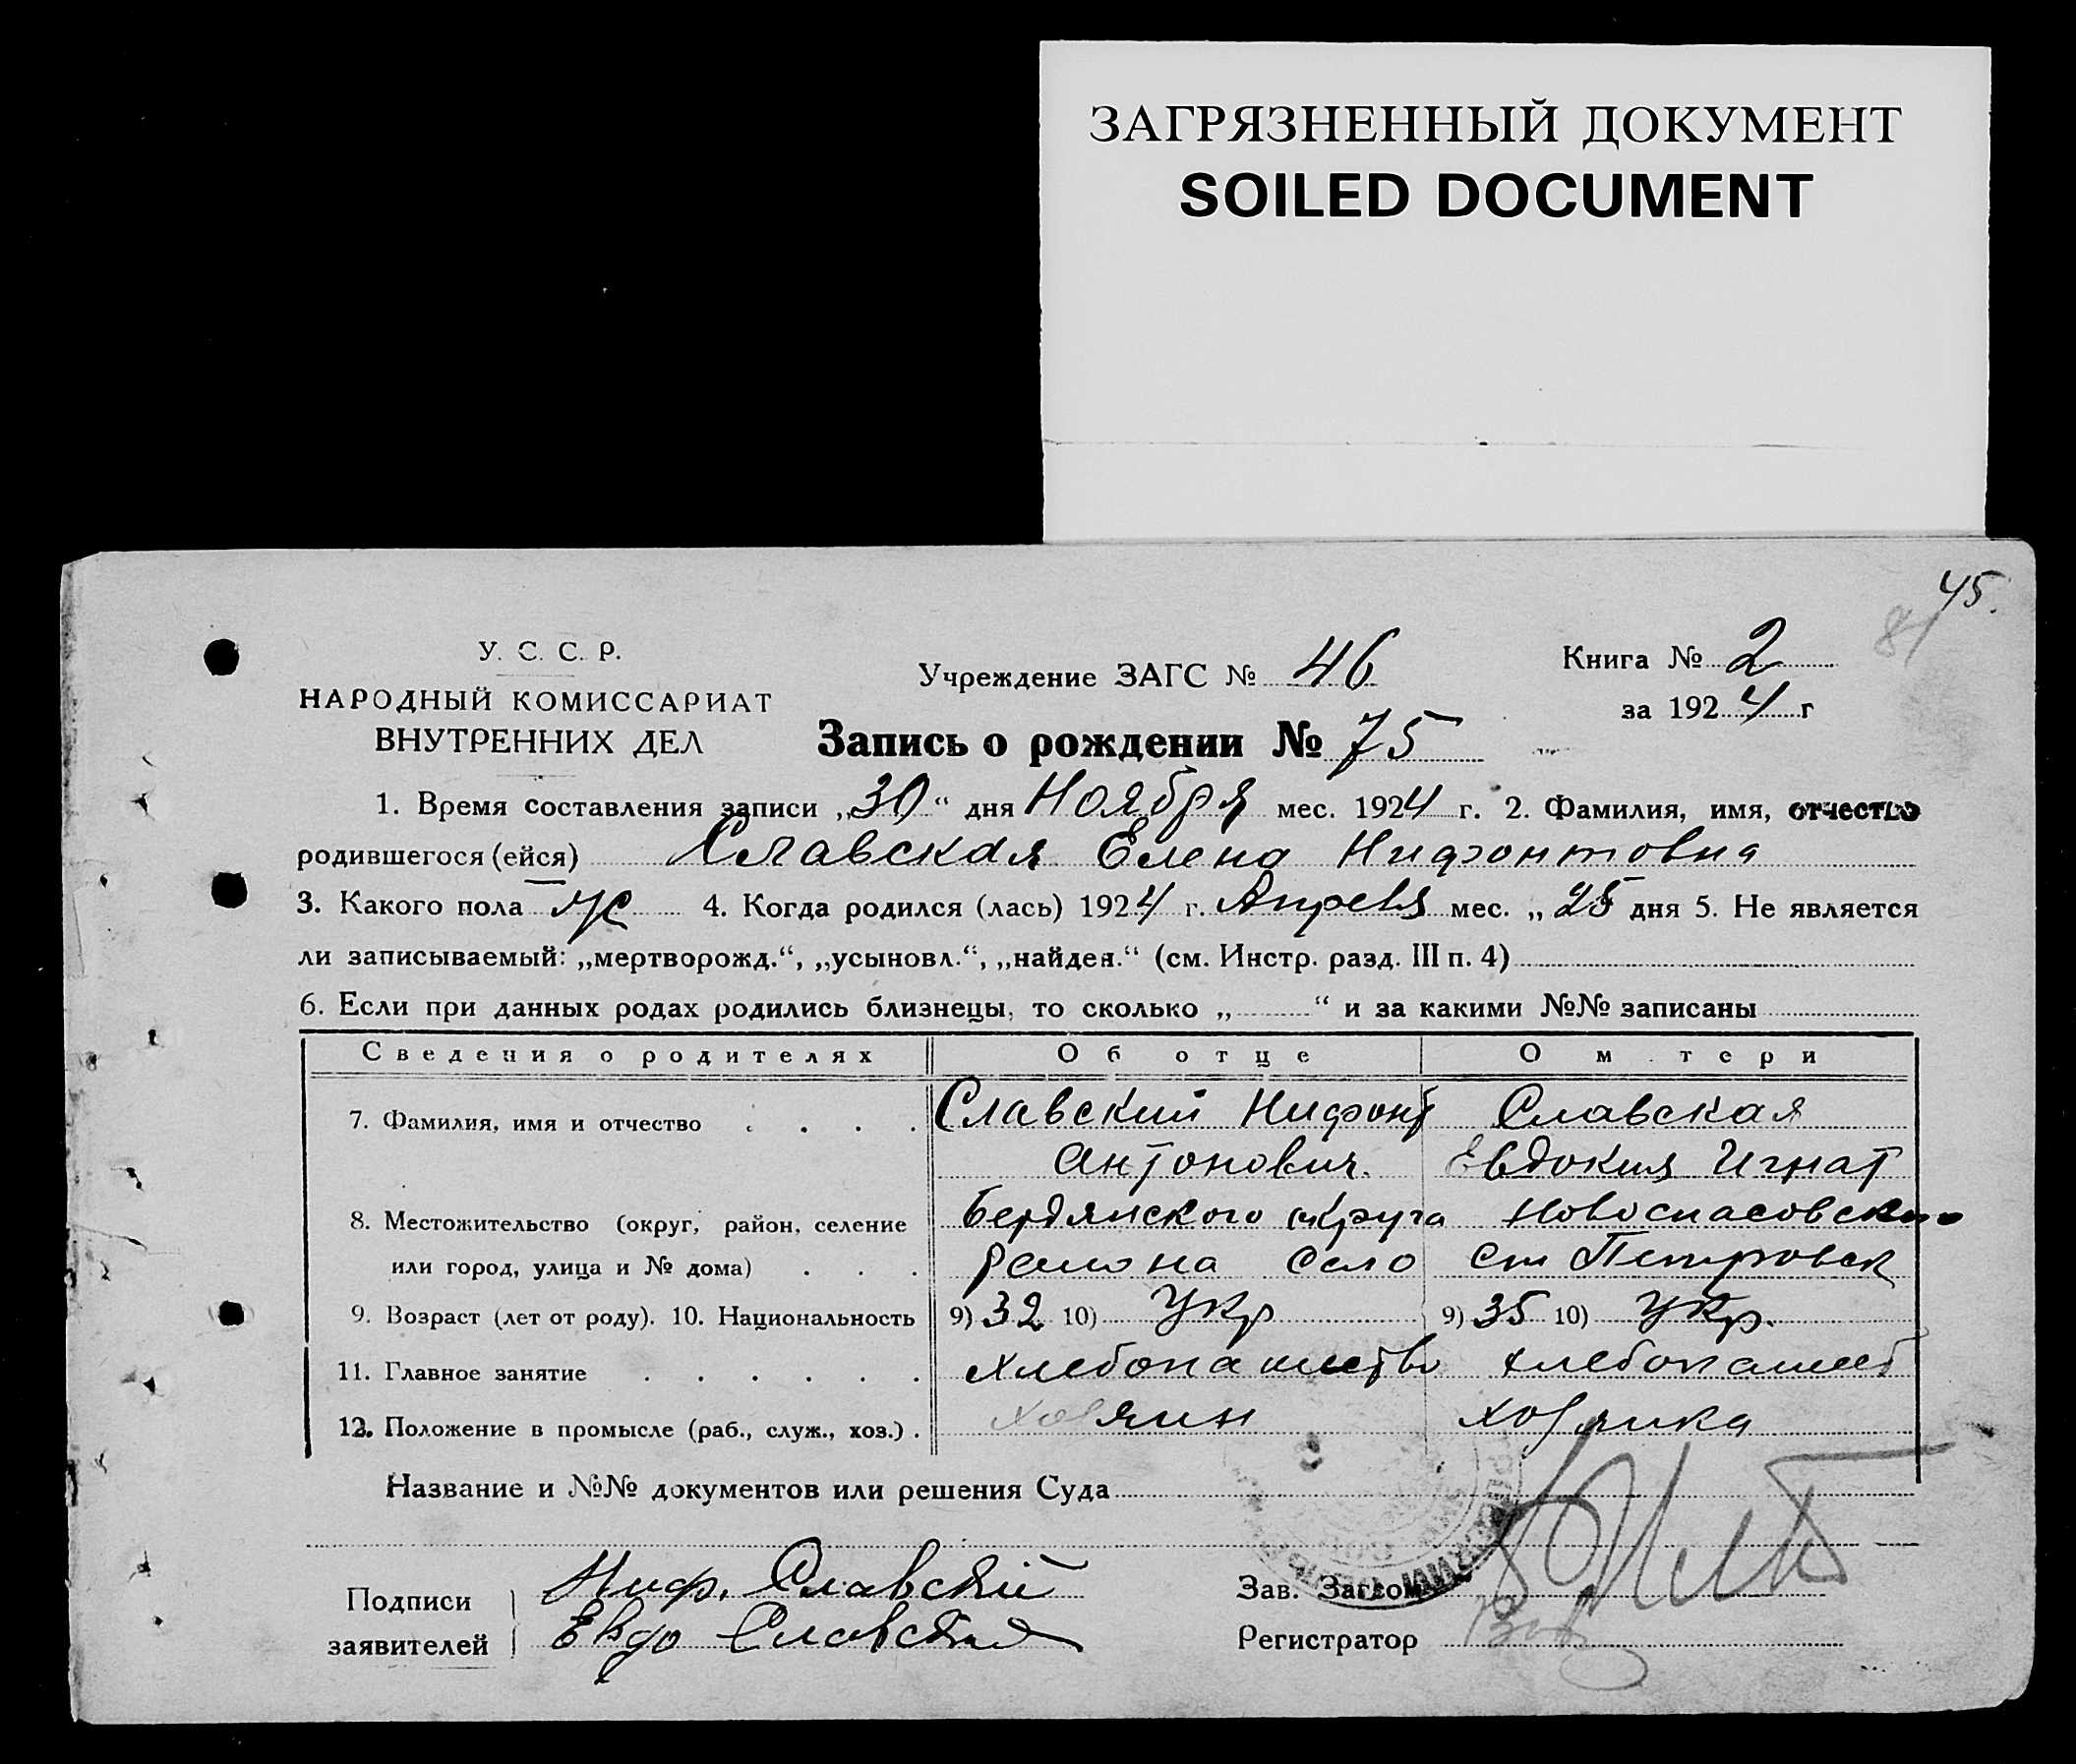 ЗАГРЯЗНЕННЫЙ ДОКУМЕНТ
SOILED DOCUMENT
45.
81
У. С. С. Р.
НАРОДНЫЙ КОМИССАРИАТ
ВНУТРЕННИХ ДЕЛ
Учреждение ЗАГС № 46
Книга № 2
за 1924 г
Запись о рождении № 75
1. Время составления записи „30“ дня Ноября мес. 1924 г. 2. Фамилия, имя, отчество
родившегося (ейся) Славская Елена Нифонтовна
3. Какого пола ж 4. Когда родился (лась) 1924 г. Апреля мес. „25 дня 5. Не является
ли записываемый: „мертворожд.“, „усыновл.“, „найден.“ (см. Инстр. разд. III п. 4)
6. Если при данных родах родились близнецы, то сколько „ “ и за какими №№ записаны
Сведения о родителях Об отце О м тери
7. Фамилия, имя и отчество Славский Нифонт Славская
Антонович. Евдокия Игнат
8. Местожительство (округ, район, селение Бердянского округа Новоспасовского
или город, улица и № дома) района село Петровск
9. Возраст (лет от роду). 10. Национальность 9) 32 10) Укр 9) 35 10) Укр.
11. Главное занятие хлебопашество хлебопашест
12. Положение в промысле (раб., служ., хоз.) хозяин хозяйка
Название и №№ документов или решения Суда
Подписи Ниф. Славский
заявителей Евдо Славская
Зав. Загсом
Регистратор